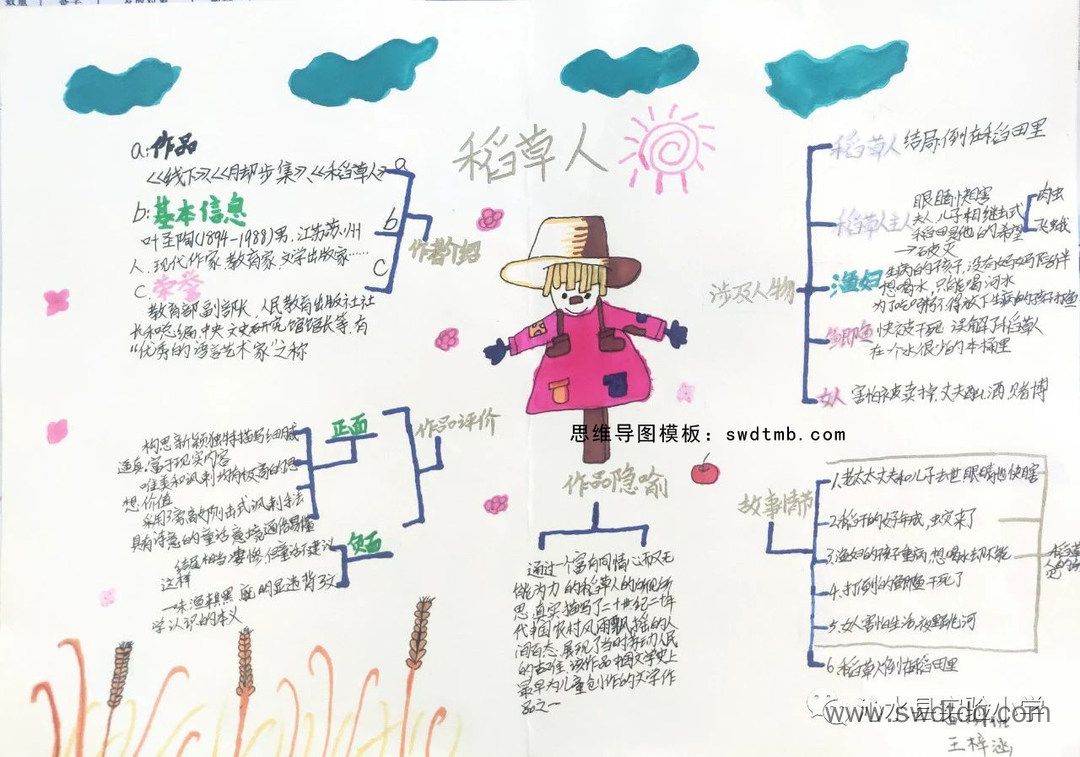 稻草人
a:作品
《线下》、《脚步集》、《稻草人》
a
b:基本信息
b
叶圣陶(1894-1988)男,江苏苏州
人,现代作家、教育家、文学出版家……
c
C.荣誉
教育部副部长、人民教育出版社社
长和总编、中央文史研究馆馆长等,有
“优秀的语言艺术家”之称
作者介绍
作品评价
正面
构思新颖独特描写细腻
逼真,富于现实内容
唯美和讽刺均有极高的思
想价值
具有诗意的童话意境通俗易懂
负面
结尾相当凄惨,但童话不建议
这样
一味渲染黑暗,明显违背了文
学认识的本义
涉及人物
稻草人 结局:倒在稻田里
稻草人主人
眼睛快瞎
夫人、儿子相继去世
稻田是他的希望
→破灭
肉虫
飞蛾
渔妇
生病的孩子,没有妈妈陪伴
想喝水,只能喝河水
鲫鱼 快被干死 误解了稻草人
在一个水很少的木桶里
女人 害怕被卖掉,丈夫酗酒、赌博
思维导图模板：swdtmb.com
作品隐喻
通过一个富有同情心而又无
能为力的稻草人的所见所
思,真实描写了二十世纪二十年
代中国农村风雨飘摇的人
间百态,展现了当时劳动人民
的苦难,该作品是中国文学史上
最早为儿童创作的文学作
品之一
故事情节
1.老太太丈夫和儿子去世,眼睛也快瞎
2.稻子的好年成,虫灾来了
3.渔妇的孩子重病,想喝水却不能
4.打倒的鲫鱼干死了
5.女人害怕生活,夜里跳河
6.稻草人倒在稻田里
www.swdtdq.com
王梓涵